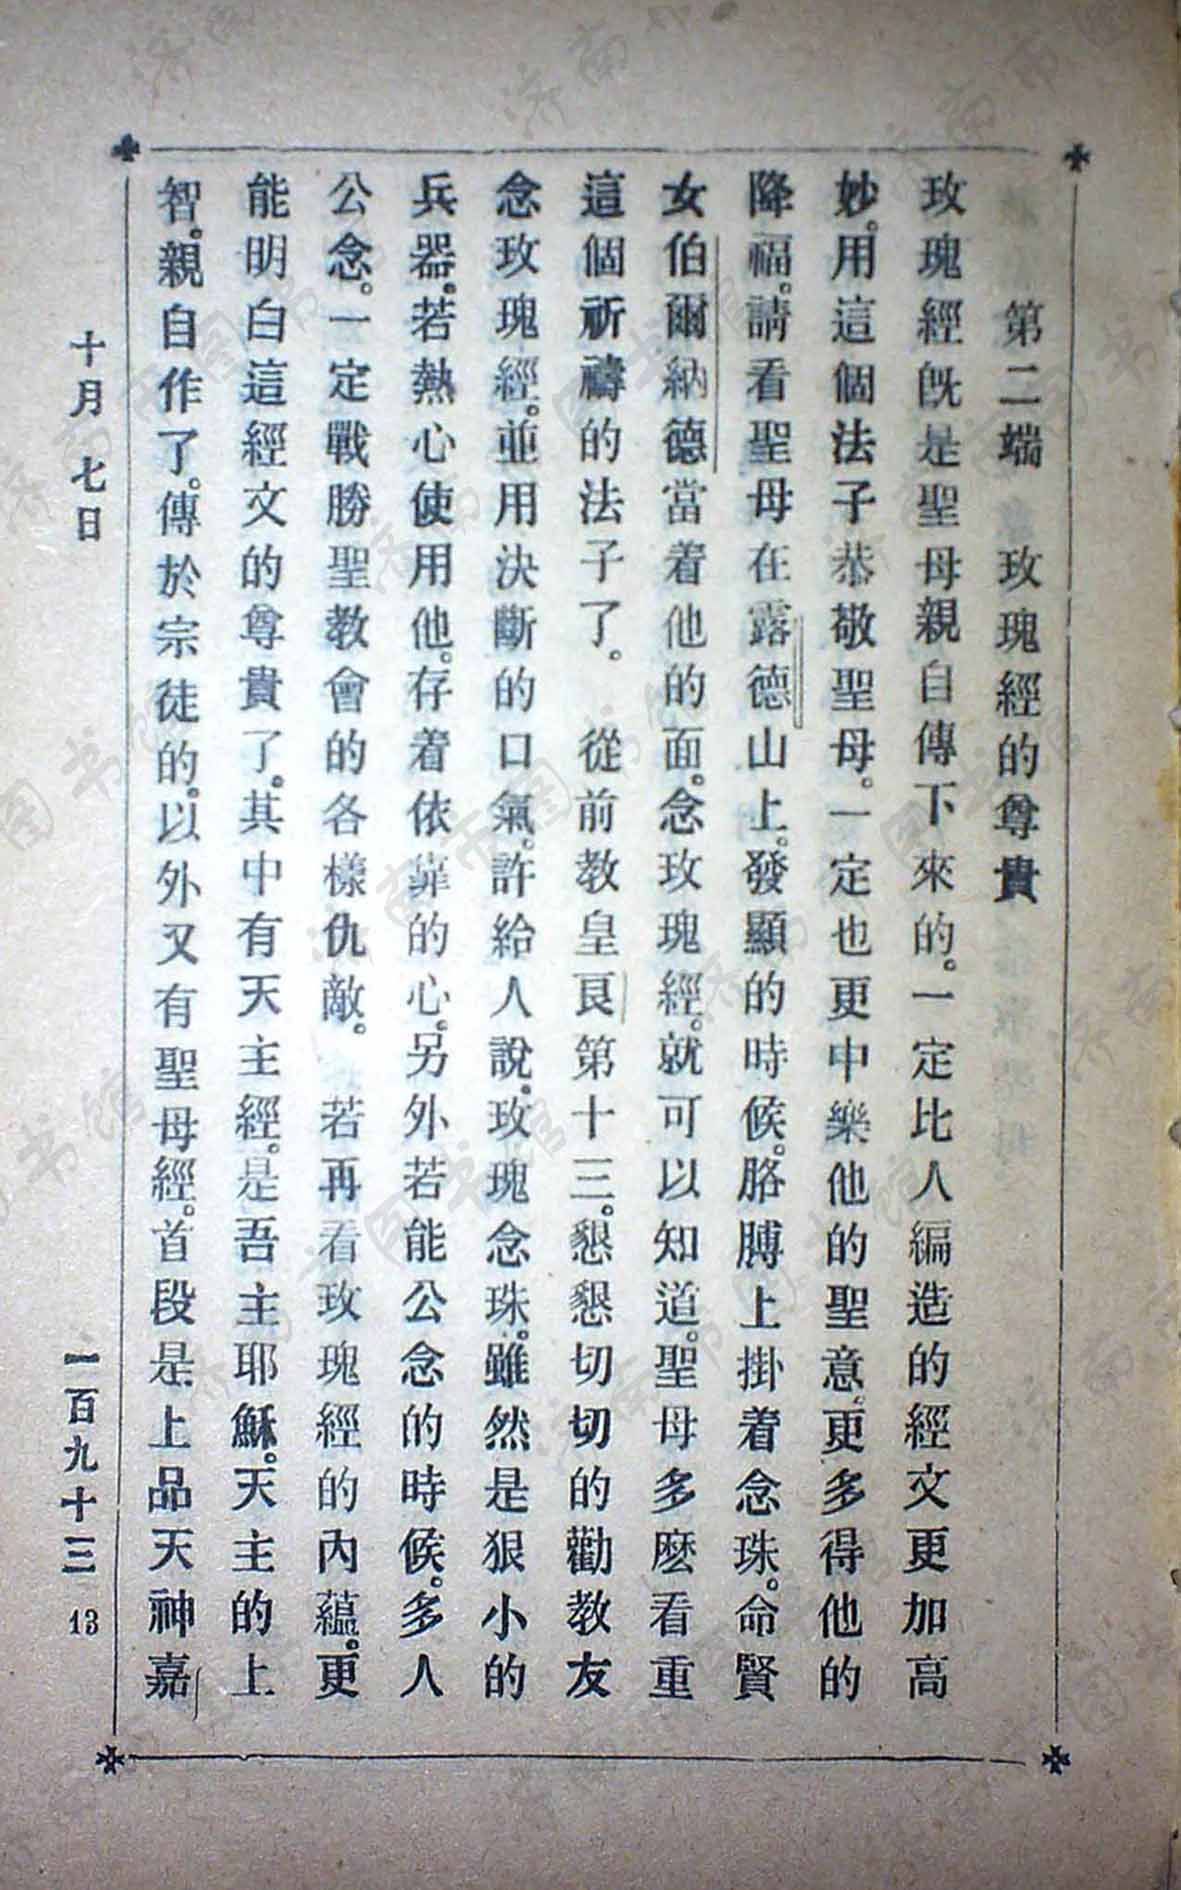 第二端　玫瑰經的尊貴
玫瑰經旣是聖母親自傳下來的。一定比人編造的經文更加高
妙。用這個法子恭敬聖母。一定也更中樂他的聖意。更多得他的
降福。請看聖母在露德山上。發顯的時候。胳膊上掛着念珠。命賢
女伯爾納德當着他的面。念玫瑰經。就可以知道。聖母多麽看重
這個祈禱的法子了。　從前教皇良第十三。懇懇切切的勸教友
念玫瑰經。並用決斷的口氣。許給人說。玫瑰念珠。雖然是狠小的
兵器。若熱心使用他。存着依靠的心。另外若能公念的時候。多人
公念。一定戰勝聖教會的各樣仇敵。　若再看玫瑰經的內蘊。更
能明白這經文的尊貴了。其中有天主經。是吾主耶穌。天主的上
智。親自作了。傳於宗徒的。以外又有聖母經。首段是上品天神嘉
十月七日
一百九十三 13
济南市图书馆